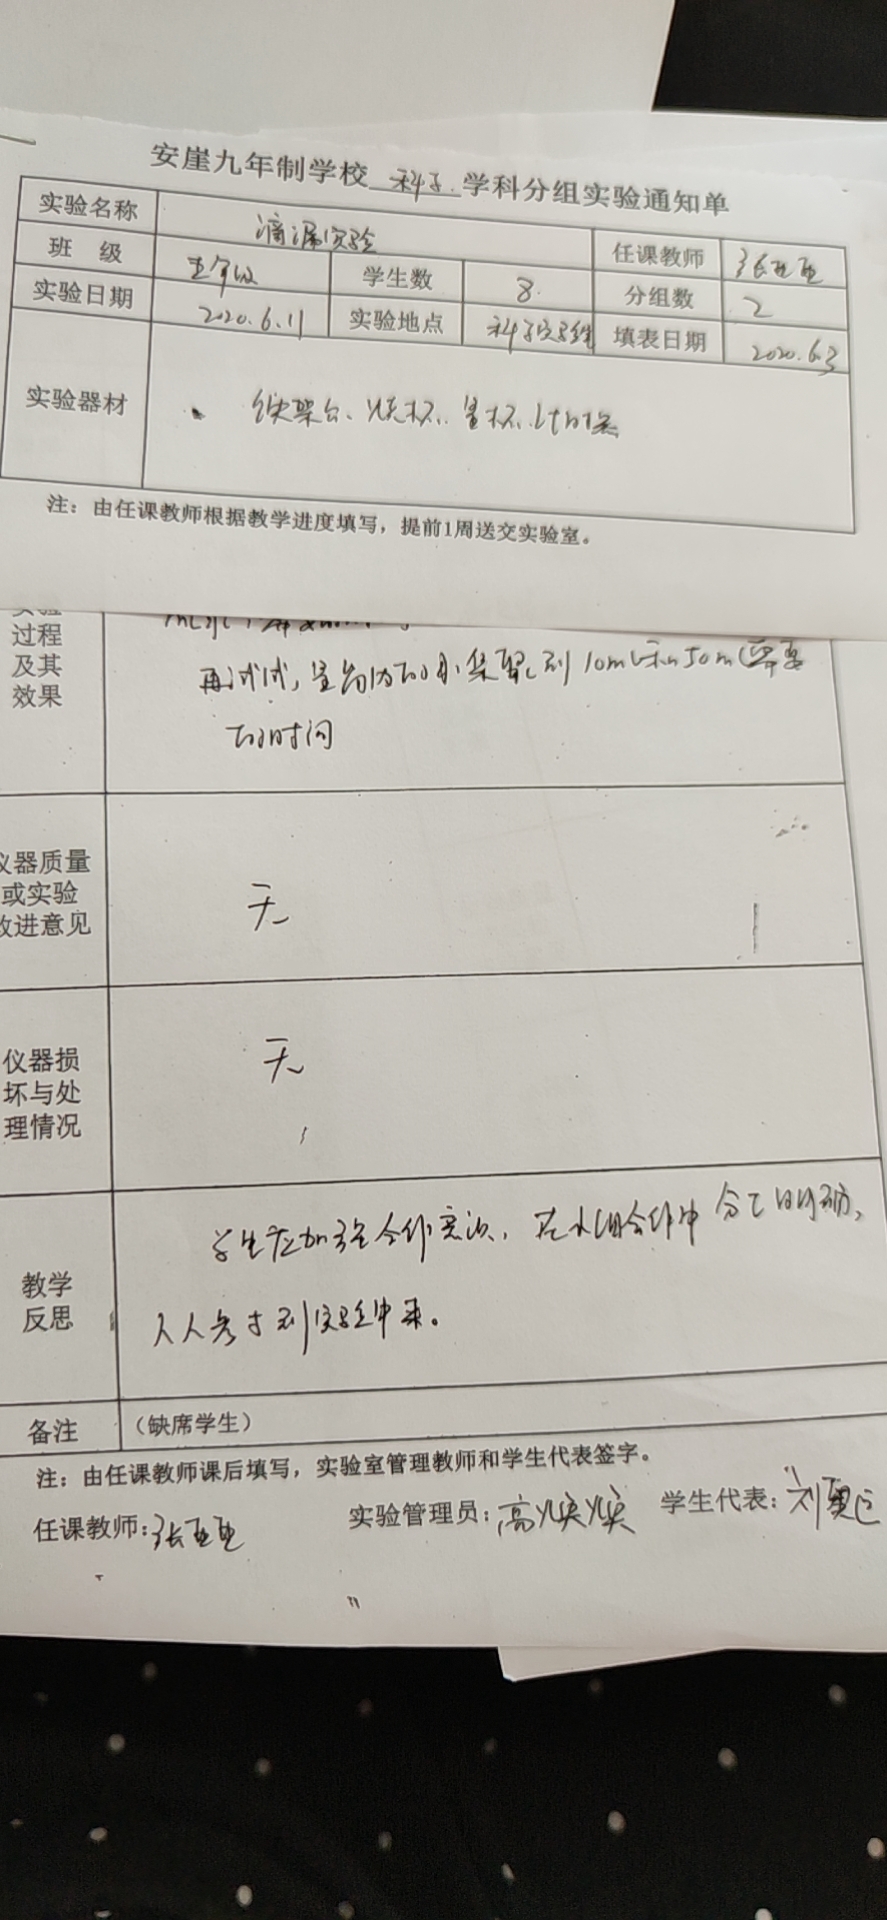 安崖九年制学校 科学 学科分组实验通知单
实验名称 滴漏实验 任课教师 张亚亚
班 级 五年级 学生数 8 分组数 2
实验日期 2020.6.11 实验地点 科学实验室 填表日期 2020.6.3
实验器材 铁架台、烧杯、量杯、计时器
注：由任课教师根据教学进度填写，提前1周送交实验室。
实验
过程
及其
效果
再试试，量筒内的水集聚到10ml和50ml需要
的时间
仪器质量
或实验
改进意见
无
仪器损
坏与处
理情况
无
教学
反思
学生应加强合作意识，在小组合作中分工明确，
人人参与到实验中来。
备注 （缺席学生）
注：由任课教师课后填写，实验室管理教师和学生代表签字。
任课教师：张亚亚 实验管理员：高焕焕 学生代表：刘